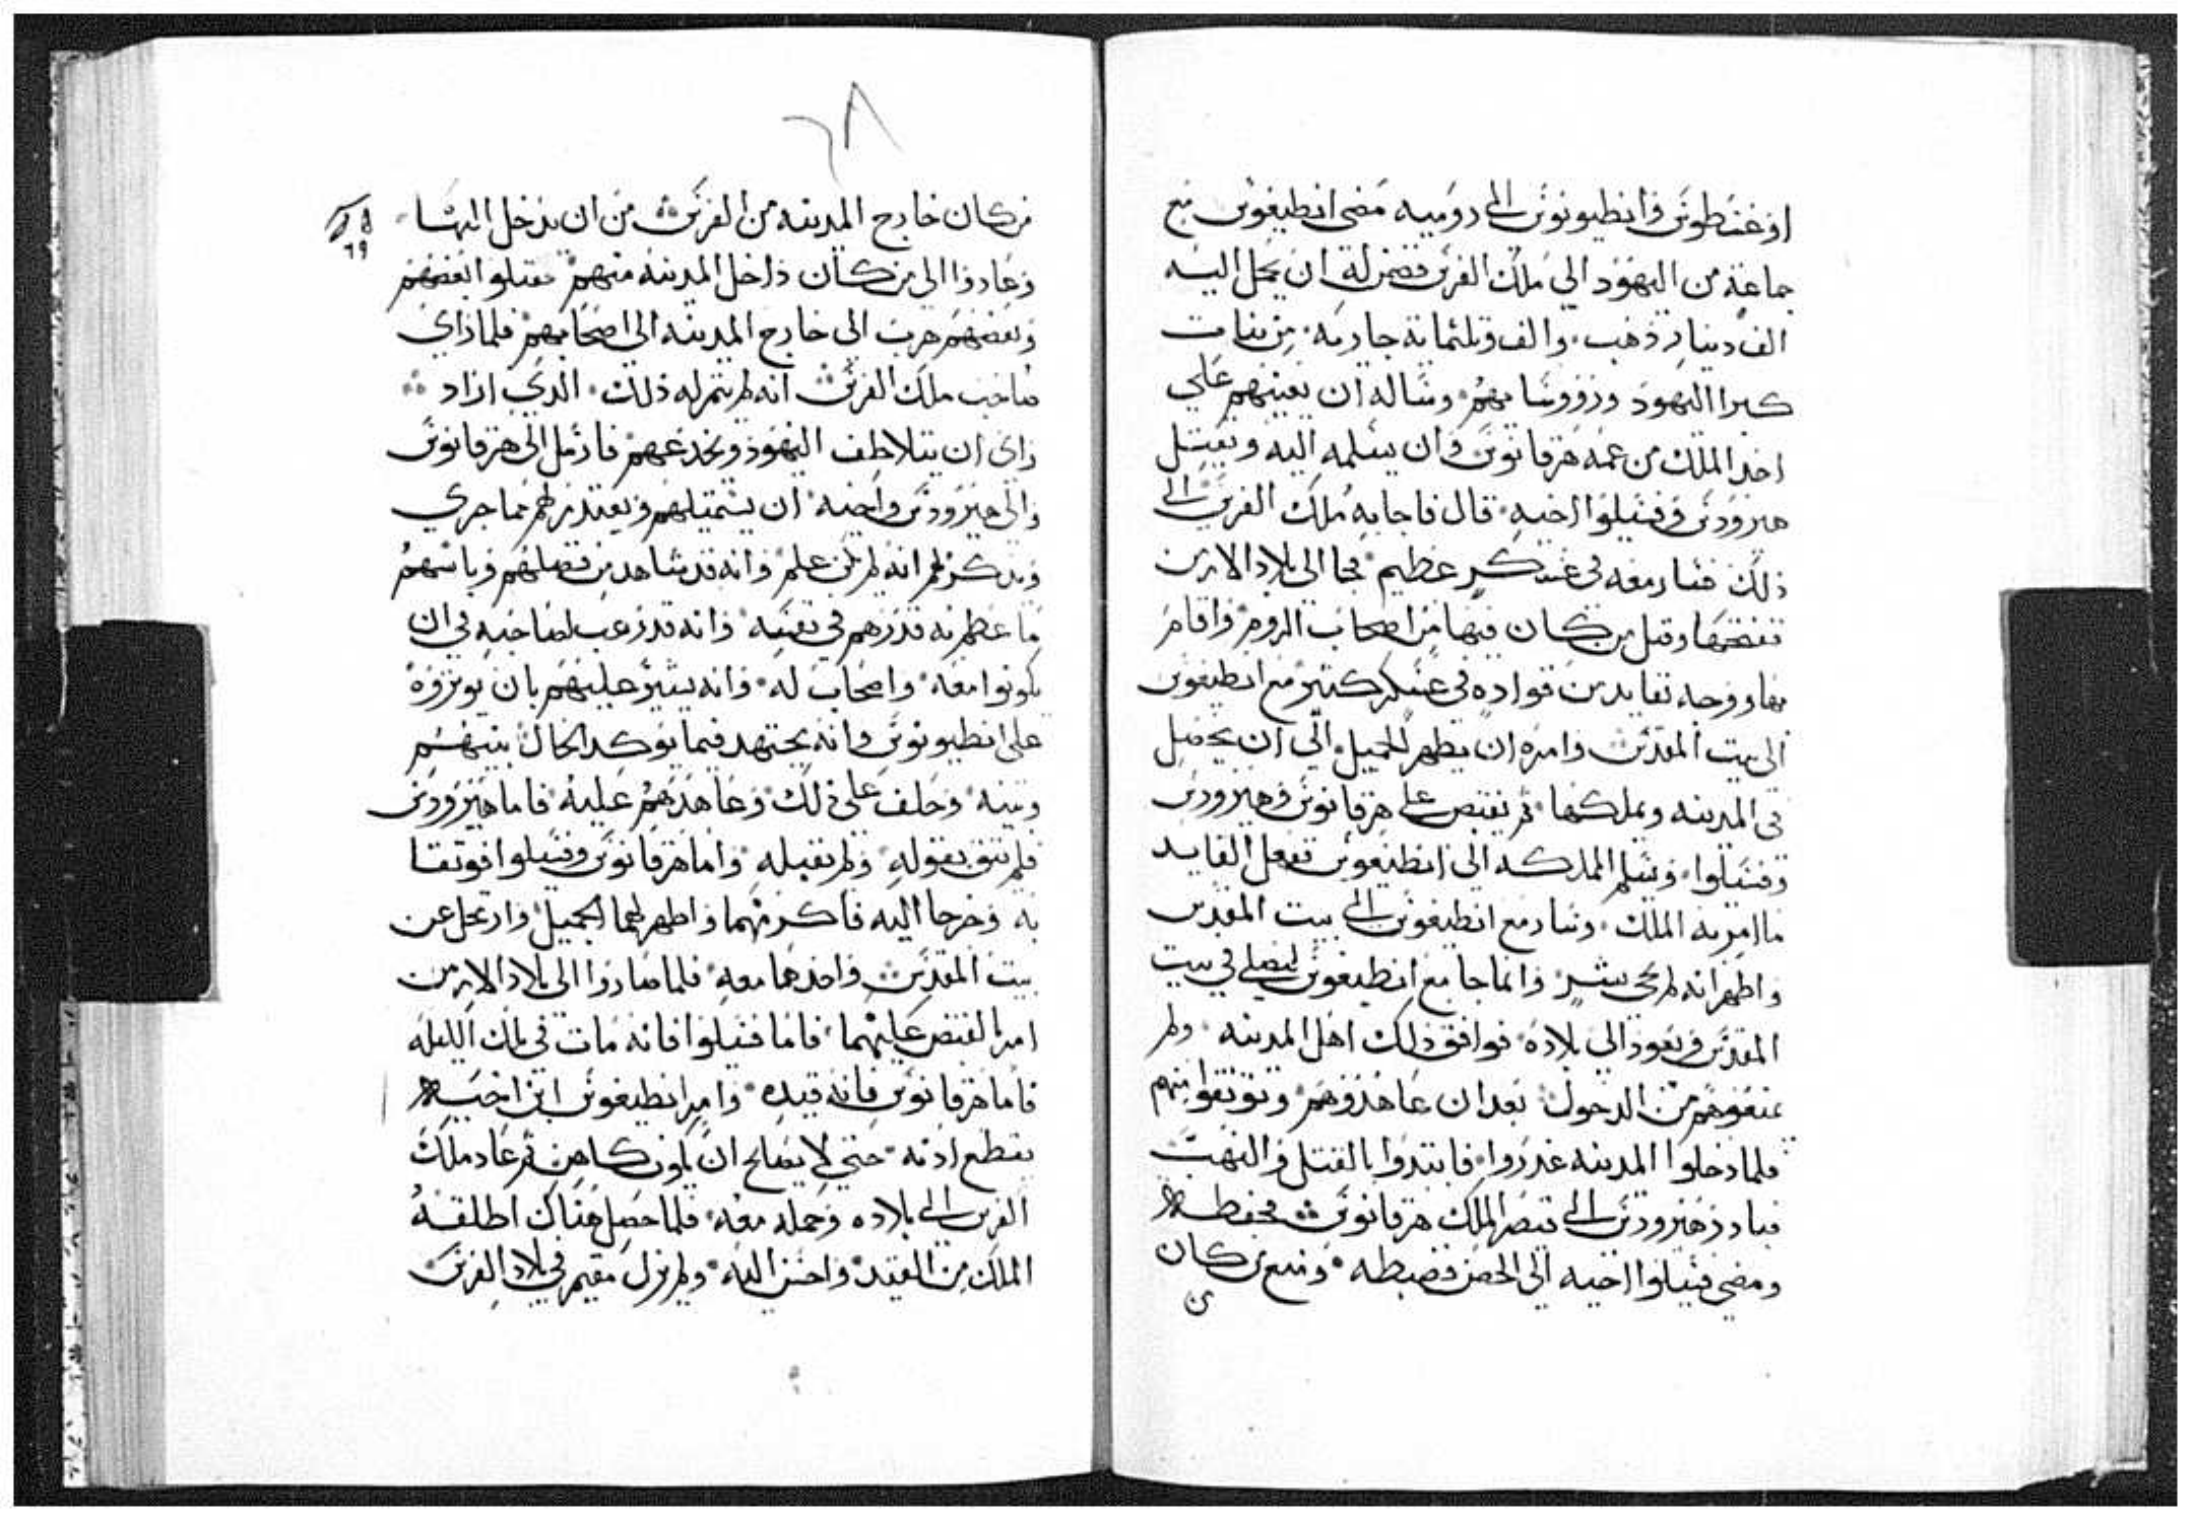 اوغسطوس وانطيونوس الى روميه مضى انطيغوس مع
جماعة من اليهود الي ملك الفرس فضمن له ان يحمل اليه
الف دينار ذهب والف وثلثماية جاريه من بنات
كبرا اليهود ورووسايهم وساله ان يعينهم علي
اخد الملك من عمه هرقانوس وان يسلمه اليه ويقتل
هيرودس وفسيلوا اخيه قال فاجابه ملك الفرس الي
ذلك فسار معه في عسكر عظيم فجا الي بلاد الارمن
ففتحها وقتل من كان فيها من اصحاب الروم واقام
بها ووجه بقايد من قواده في عسكر كتير مع انطيغوس
الى بيت المقدس وامره ان يظهر الجميل الي ان يحصل
في المدينه ويملكها ثم يقبض علي هرقانوس وهيرودس
وفسيلوا ويسلم المملكه الى انطيغوس ففعل القايد
ما امر به الملك وسار مع انطيغوس الي بيت المقدس
واظهر انه لم يجي بشر وانما جا مع انطيغوس ليصلي في بيت
المقدس ويعود الي بلاده فوافق ذلك اهل المدينه ولم
يمنعوهم من الدخول بعد ان عاهدوهم وتوثقوا منهم
فلما دخلوا المدينه غدروا فابتدوا بالقتل والنهب
فبادر هيرودس الي قصر الملك هرقانوس فحفظه
ومضي فسيلوا اخيه الي الحصن فضبطه ومنع من كان
٦٨
من كان خارج المدينه من الفرس من ان يدخل اليها
وعادوا الي من كان داخل المدينه منهم فقتلوا بعضهم
وبعضهم هرب الى خارج المدينه الي اصحابهم فلما راي
صاحب ملك الفرس انه لم يتم له ذلك الدي اراد
راى ان يتلاطف اليهود ويخدعهم فارسل الى هرقانوس
والى هيرودس واخيه ان يستميلهم ويعتدر لهم مما جري
ويدكر لهم انه لم يكن علم وانه قد شاهد من فضلهم وباسهم
ما عظم به قدرهم في نفسه وانه قد رغب لصاحبه في ان
يكونوا معه واصحاب له وانه يشير عليهم بان يوثروه
على انطيونوس وانه يجتهد فيما يوكد الحال بينهم
وبينه وحلف على ذلك وعاهدهم عليه فاما هيرودس
فلم يثق بقوله ولم يقبله واما هرقانوس وفسيلوا فوثقا
به وخرجا اليه فاكرمهما واظهر لهما الجميل وارتحل عن
بيت المقدس واخدهما معه فلما صاروا الى بلاد الارمن
امر بالقبض عليهما فاما فسيلوا فانه مات في تلك الليله
فاما هرقانوس فانه قيده وامر انطيغوس ابن اخيه
بقطع ادنه حتي لا يصلح ان يكون كاهن ثم عاد ملك
الفرس الي بلاده وحمله معه فلما حصل هناك اطلقه
الملك من القيد واحسن اليه ولم يزل مقيم في بلاد الفرس